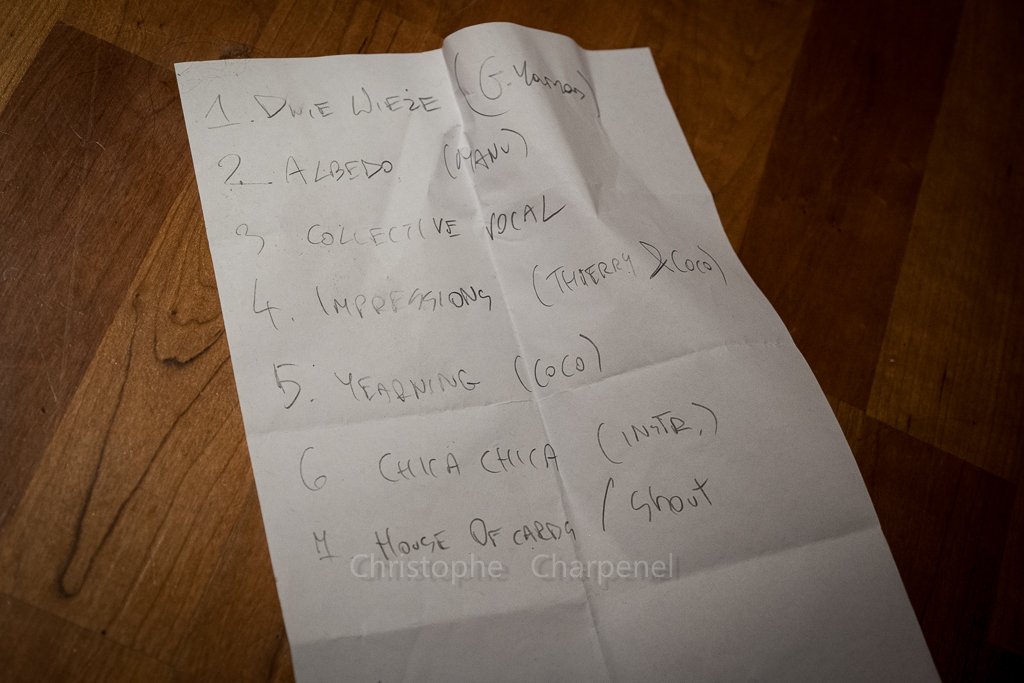 1. DWIE WIEŻE (G.
2. ALBEDO (MANU)
3 COLLECTIVE VOCAL
4. IMPRESSIONS (THIERRY & COCO)
5. YEARNING (COCO)
6 CHICA CHICA (INSTR,)
7 HOUSE OF CARDS / Shout
Christophe Charpenel